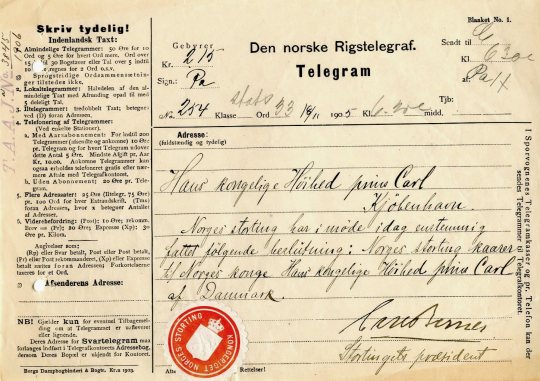 Skriv tydelig!
Indenlandsk Taxt:
Almindelige Telegrammer: 50 Øre for 10
Ord og 5 Øre for hvert Ord mere. Ord over
Bogstaver eller Tal over 5 indtil
regnes for 2 o.s.v.
Sprogstridige Ordsammensætninger
tilstedes ikke.
Lokaltelegrammer: Halvdelen af den almindelige
Taxt med Afrunding opad til med
5 deleligt Tal.
Iltelegrammer: tredobbelt Taxt; betegnes
ved (D) foran Adressen.
Telefonering af Telegrammer:
(Ved enkelte Stationer).
a. Med Aarsabonnement: For indtil 200
Telegrammer (afsendte og ankomne) 10 Øre
pr. Telegram og for hvert Telegram udover
dette Antal 5 Øre. Mindste Afgift pr. Aar
Kr. 10.00. Ankomne Telegrammer kan
ogsaa erholdes telefoneret gratis efter nærmere
Aftale med Telegrafkontoret.
b. Uden Abonnement: 20 Øre pr. Telegram.
Flere Adressater: 25 Øre (Iltelegr. 75 Øre),
pr. 100 Ord for hver Extraudskrift. (Tmx)
foran Adressen, hvor x betegner Antallet
af Adresser.
Viderebefordring: (Post); 10 Øre; rekomm.
Brev = (Pr); 20 Øre; Expresse (Xp): 30
Øre pr. Kilom.
Angivelser som:
(Rp) eller Svar betalt, Post eller Post betalt,
(Pr) eller Post rekommanderet, (Xp) eller Expresse
betalt anføres foran Adressen. Forkortelserne
taxeres for et Ord.
Afsenderens Adresse:
NB! Gjælder kun for eventuel Tilbagemelding
om at Telegrammet er uoverført
eller liggende.
Deres Adresse for Svartelegram maa
forlanges indført i Telegrafkontorets Adressebog,
dersom Deres Bopæl er ukjendt for Kontoret.
Bergs Dampbogbinderi & Bogtr. Kr.a 1903.
Gebyrer
Kr. 215
Sign.: Pa
Den norske Rigstelegraf.
Telegram
Blanket No. 1.
Sendt til
Kl. 630
No. 254 Klasse Stats Ord 33 18/11 1905 Kl. 6. midd.
Tjb:
Adresse:
(fuldstændig og tydelig)
Hans kongelige Höihed prins Carl
Kjöbenhavn
Norges storting har i möde idag enstemmig
fattet fölgende beslutning: Norges storting kaarer
til Norges konge Hans kongelige Höihed prins Carl
af Danmark.
Carl Berner
Stortingets præsident
KONGERIGET NORGES STORTING
Atte
Rettelser!
I Sporvognenes Telegramkasser og pr. Telefon kan der
sendes Telegrammer til Telegrafkontoret.